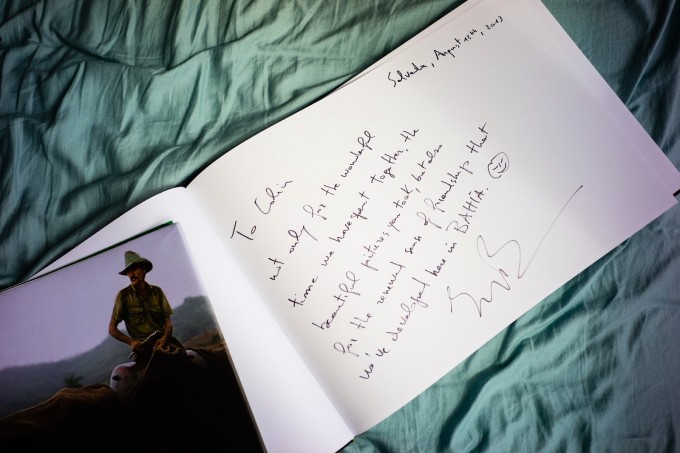 Salvador, August 15th, 2013
To Colin
not only for the wonderful
time we have spent together, the
beautiful pictures you took, but also
for the renewed sense of friendship that
we've developed here in BAHIA.